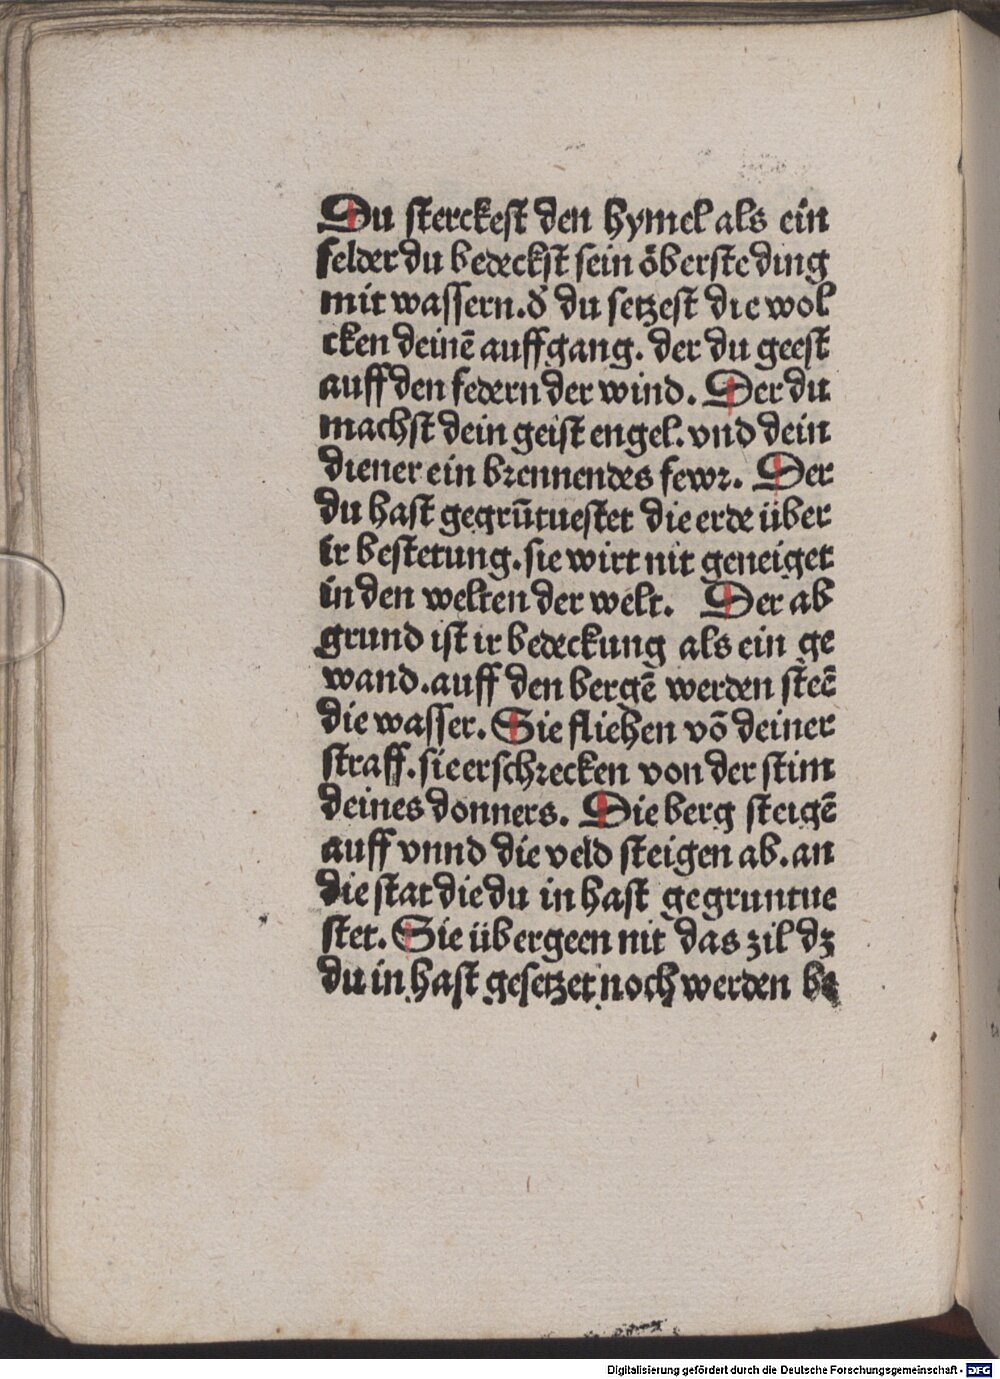 Du sterckest den hymel als ein
felder du bedeckst sein öberste ding
mit wassern. d̕ du setzest die wol
cken deinē auffgang. der du geest
auff den federn der wind. Der du
machst dein geist engel. vnd dein
diener ein brennendes fewr. Der
du hast gegrūtuestet die erde über
ir bestetung. sie wirt nit geneiget
in den welten der welt. Der ab
grund ist ir bedeckung als ein ge
wand. auff den bergē werden steē
die wasser. Sie fliehen vō deiner
straff. sie erschrecken von der stim
deines donners. Die berg steigē
auff vnnd die veld steigen ab. an
die stat die du in hast gegruntue
stet. Sie übergeen nit das zil dz
du in hast gesetzet noch werden be
Digitalisierung gefördert durch die Deutsche Forschungsgemeinschaft - DFG